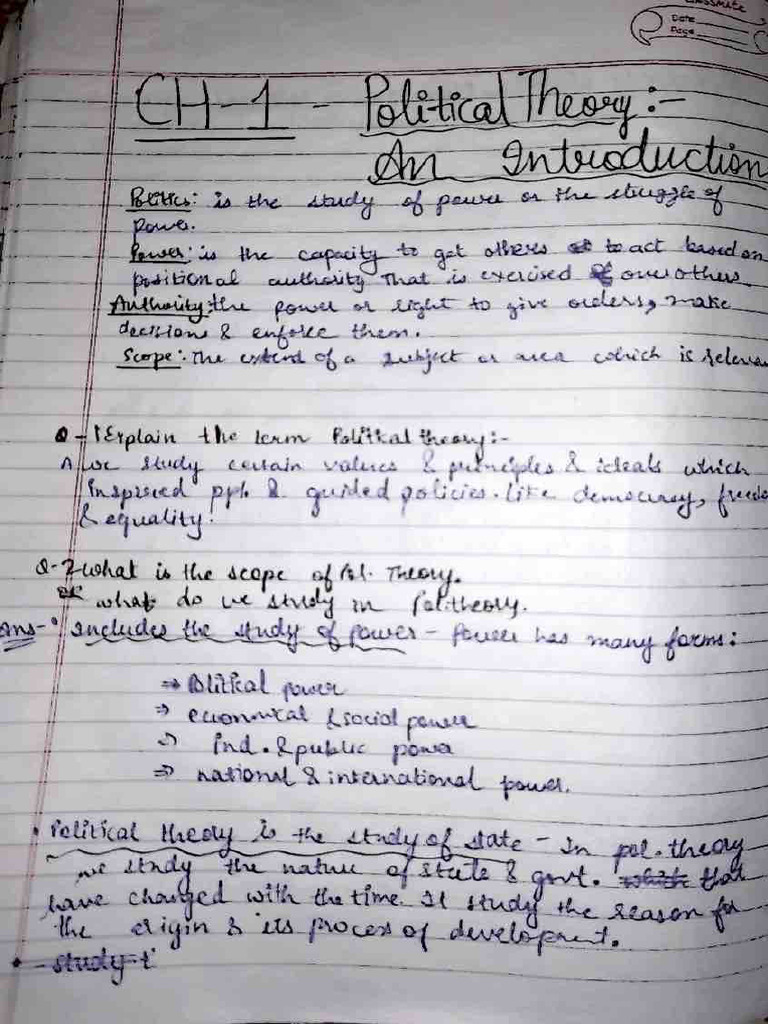 classmate
Date
Page
CH-1 - Political Theory:-
An Introduction
Politics: is the study of power or the struggle of
power.
Power: is the capacity to get others to act based on
positional authority that is exercised over others.
Authority: the power or right to give orders, make
decisions & enforce them.
Scope: The extend of a subject or area which is releva
Q-1 Explain the term Political theory:-
A we study certain values & principles & ideals which
Inspired ppl. & guided policies. Like democracy, freedo
& equality.
Q-2 what is the scope of Pol. Theory.
OR what do we study in Pol. theory.
Ans- • Includes the study of power - Power has many forms:
⇒ Political power
⇒ economical & social power
⇒ Ind. & public power
⇒ national & international power.
• Political theory is the study of state - In pol. theory
we study the nature of state & govt. which that
have changed with the time. It study the reason for
the origin & its process of development.
• - study t